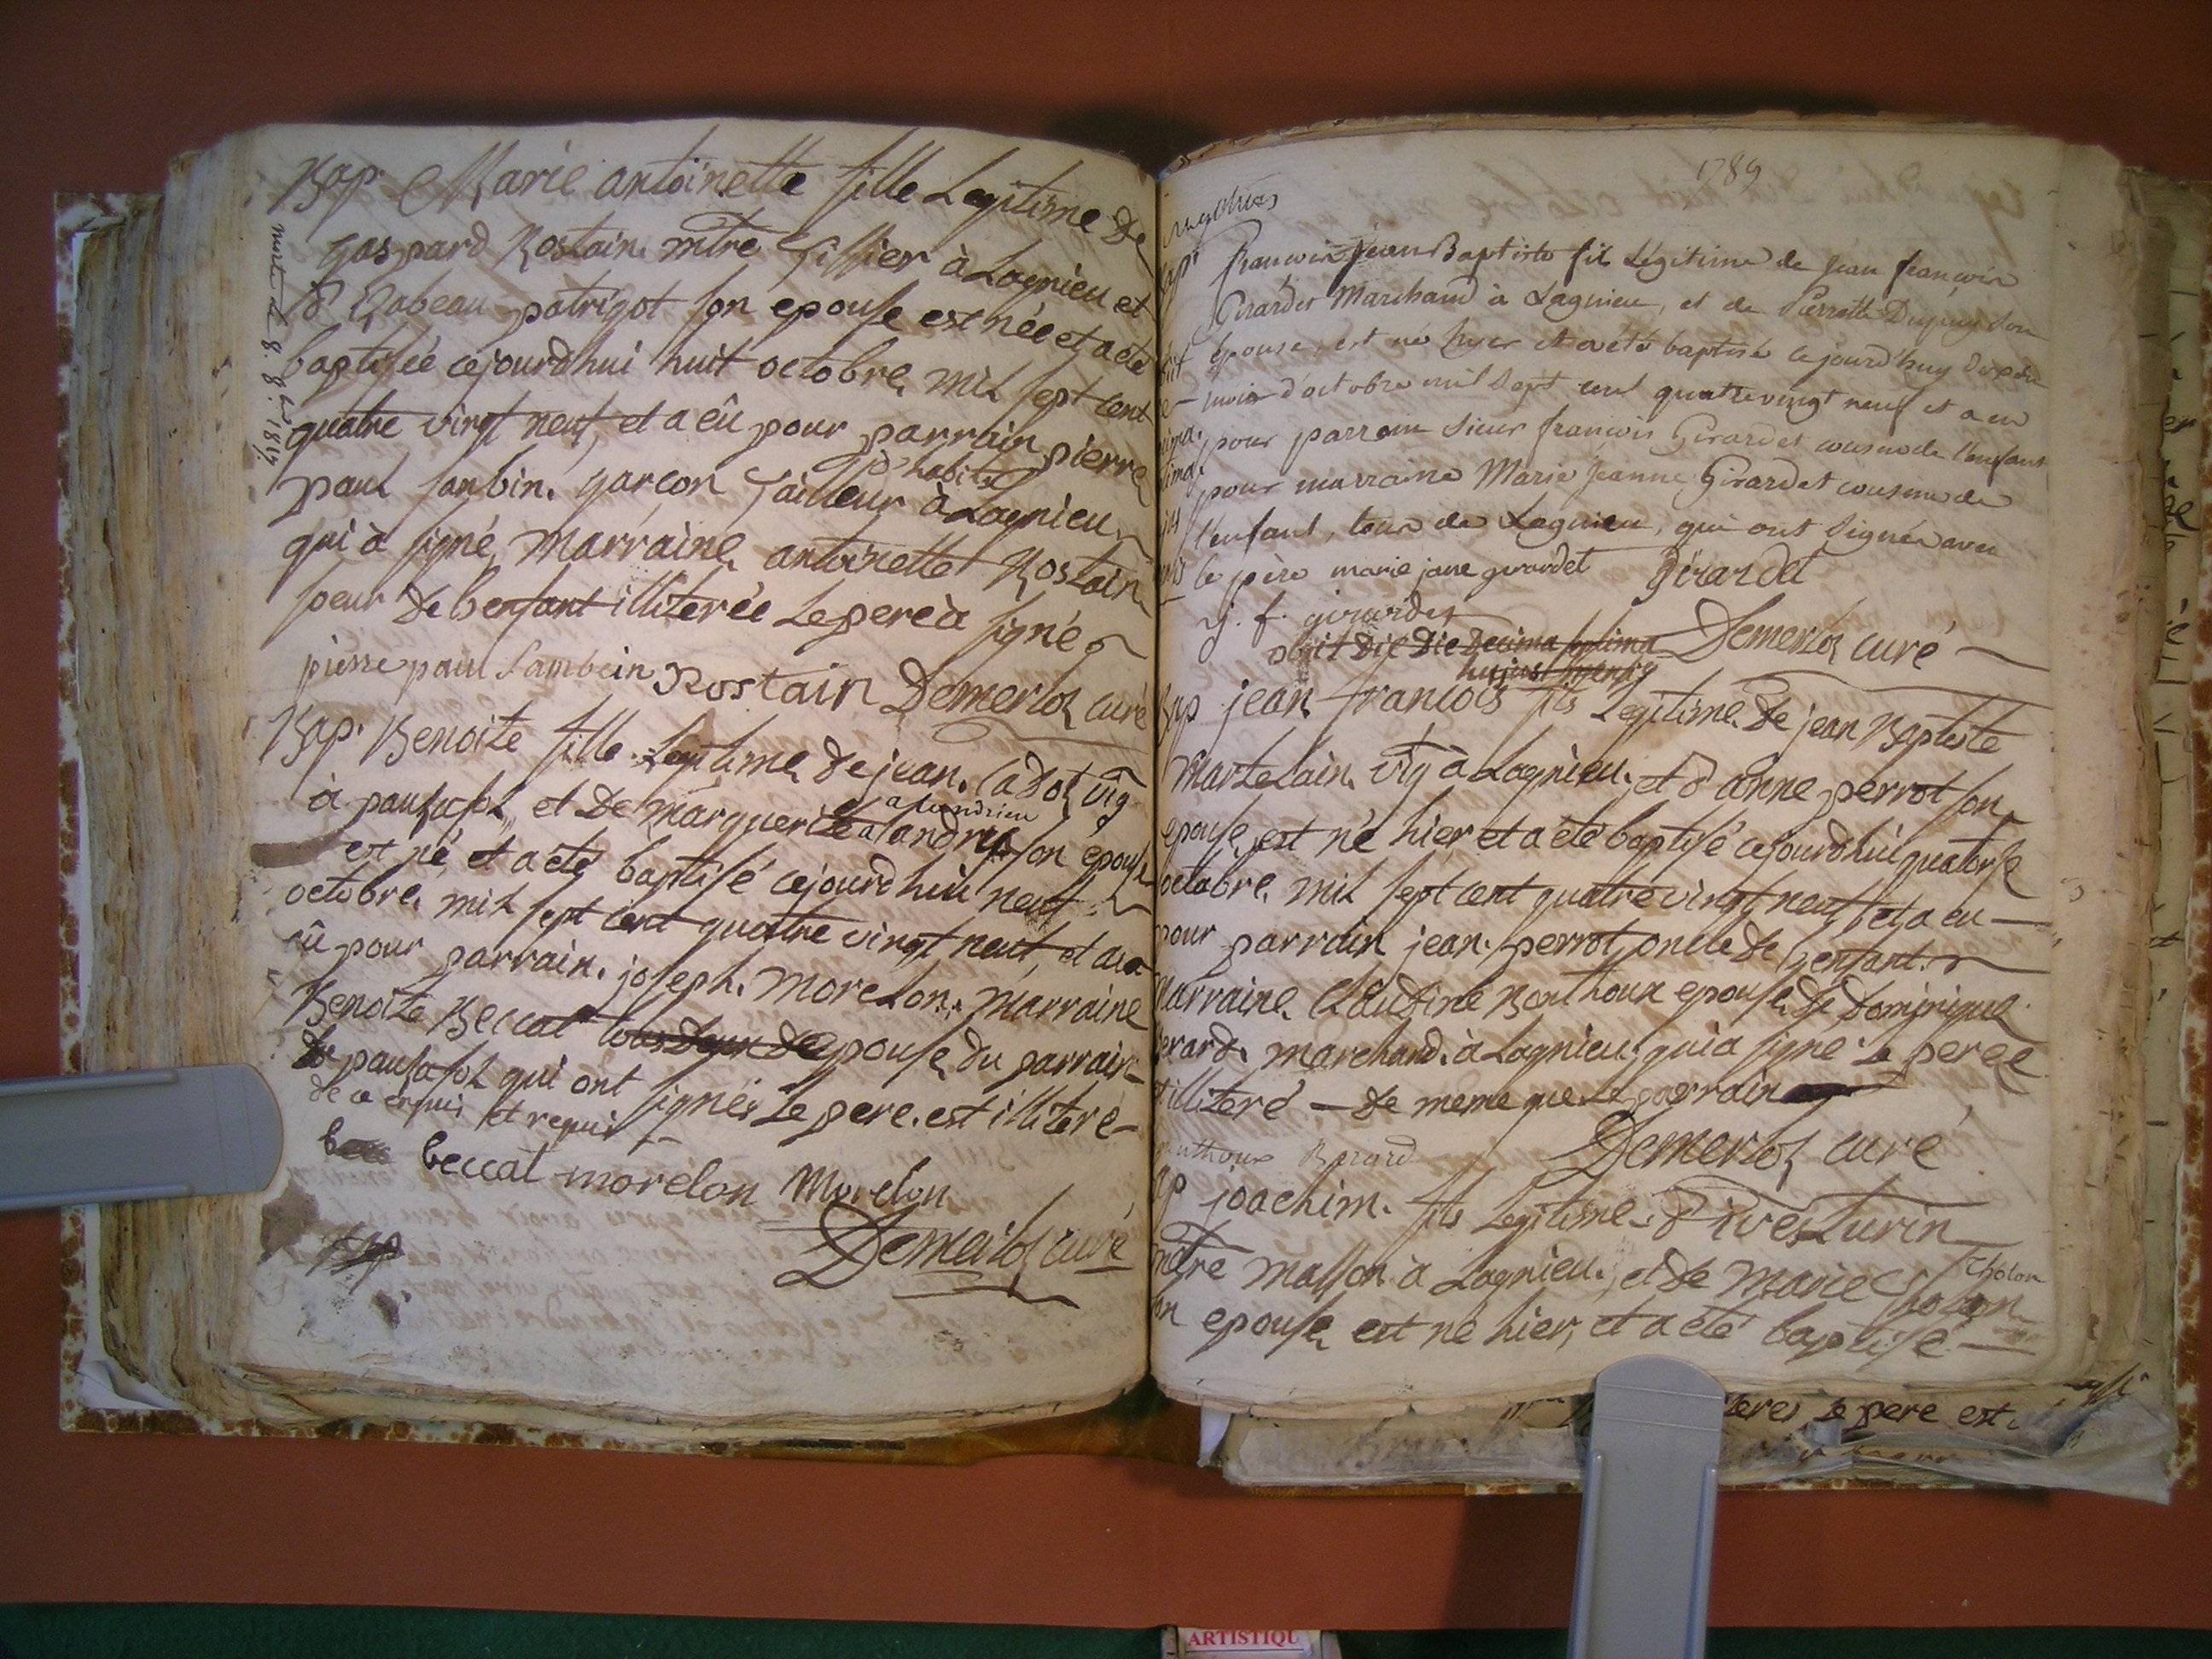 Bap. Marie antoinette fille Legitime De
gaspard Rostain mtre Tissier à Lagnieu et
d'isabeau patrigot son epouse est née et a eté
baptisée cejourdhui huit octobre mil sept cent
quatre vingt neuf, et a eû pour parrain pierre
paul garçon Tailleur à Lagnieu
qui à signé, Marraine antoinette Rostain
soeur De l'enfant illiterée Le pere à signé
pierre paul Sambein Rostain Demerloz curé
morte le 8. 8.bre
Bap. Benoite fille Legitime De jean Cadoz vig
alandrieu
à et De marguerite son epouse
est né, et a eté baptisé cejourdhui neuf
octobre mil sept cent quatre vingt neuf, et a
eû pour parrain joseph Morelon, Marraine
Benoite Beccat tous deux de epouse du parrain
qui ont signés Le pere est illiteré
de ce enquis et requis
beccat morelon Morelon
Demerloz curé
Bap
1789
Bap. francois jean Baptiste fils Légitime de jean francois
Girardet Marchand à Lagnieu, et de Pierrette Dupuy son
épouse, est né hyer et a été baptisé cejourd'huy dix du
mois d'octobre mil sept cent quatrevingt neuf et a eu
pour parrain sieur francois Girardet cousin de l'enfant
pour marraine Marie Jeanne Girardet cousine de
l'enfant, tous de Lagnieu, qui ont signés avec
le père marie jane girardet Girardet
j. f. girardet
obiit Die Die Decima septima Demerloz curé
hujus mensis
Bap jean francois fils Legitime De jean Baptiste
Martelain vig à Lagnieu et d'anne perrot son
epouse est né hier et a eté baptisé cejourdhui quatorse
octobre mil sept cent quatre vingt neuf et a eu
pour parrain jean perrot oncle De l'enfant
Marraine Claudine Bonthoux epouse De Dominique
Berard marchand à Lagnieu, qui a signé Le pere e
t illiteré — De meme que Le parrain
Berard Demerloz curé
Bap joachim fils Legitime d'ives Turin
mtre masson à Lagnieu et De Marie Cholon
Tholon
son epouse est né hier, et a eté baptisé
Le pere est
ARTISTIQU